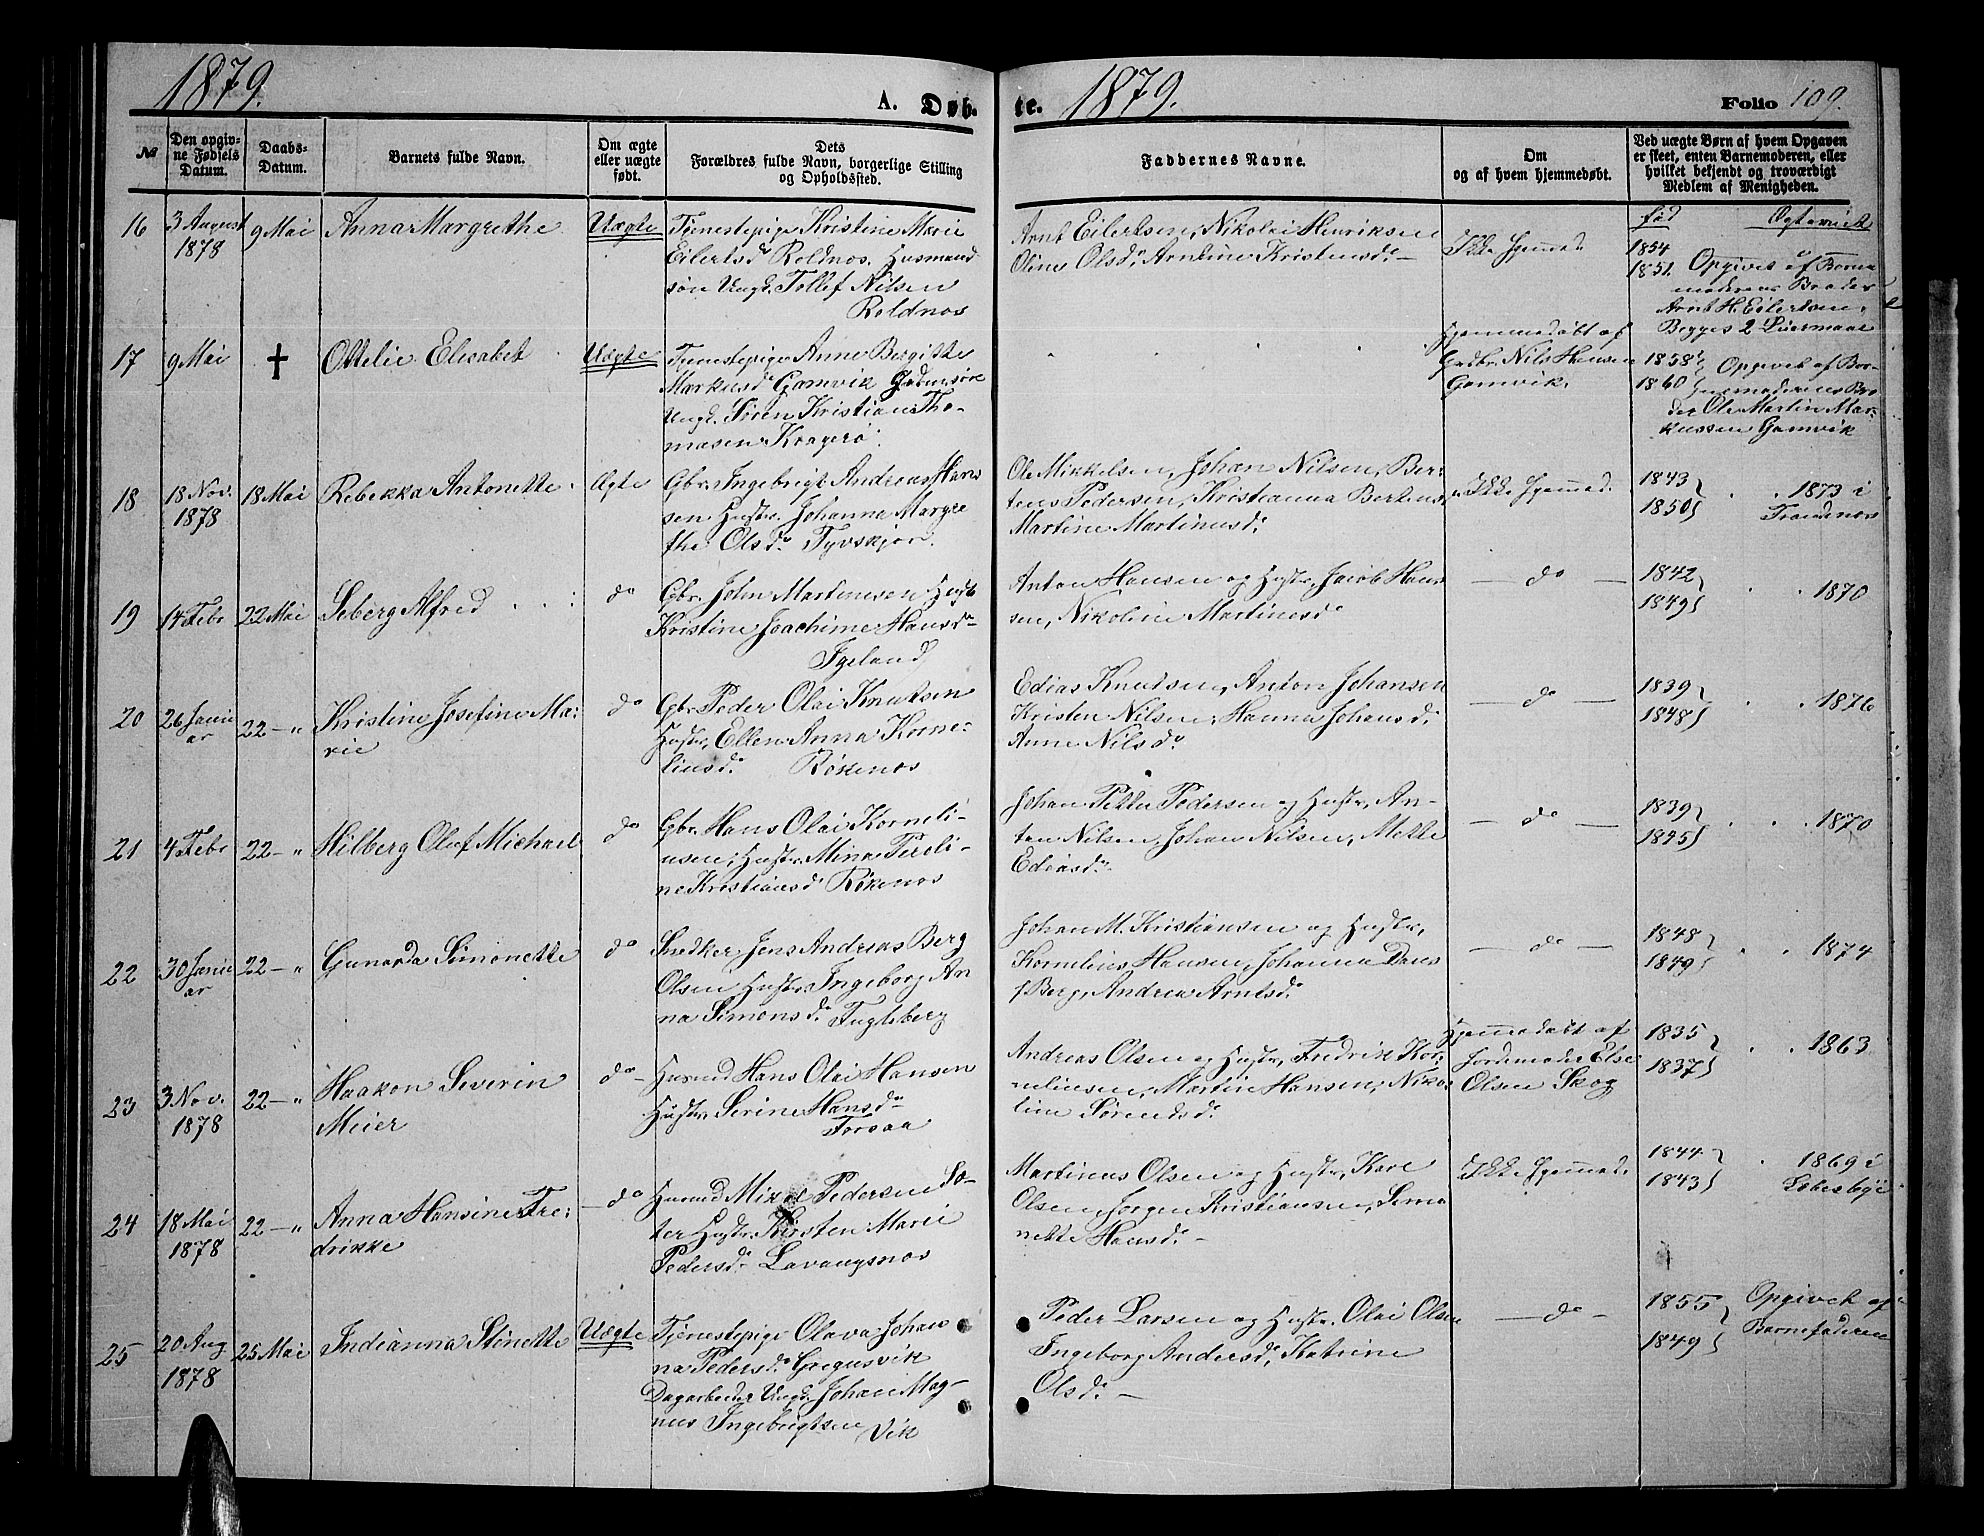 1879.
A. Døb-
te.
1879.
Folio 109.
№
Den opgiv-
ne Fødsels
Datum.
Daabs-
Datum.
Barnets fulde Navn.
Om ægte
eller uægte
født.
Dets
Forældres fulde Navn, borgerlige Stilling
og Opholdssted.
Faddernes Navne.
Om
og af hvem hjemmedøbt.
Ved uægte Børn af hvem Opgaven
er skeet, enten Barnemoderen, eller
hvilket bekjendt og troværdigt
Medlem af Menigheden.
16
3 August
1878
9 Mai
Anna Margrethe
Uægte
Tjenestepige Kristine Marie
Eilertsd Roldnos. Husmand
søn Ungk. Tollef Nilsen
Roldnos
Arnt Eilertsen, Nikolai Henriksen
Oline Olsdr, Arntine Kristensdr
Ikke hjemmed.
fød
1854
1851.
Opgivet af Barne
moderens Broder
Arnt H. Eilertsen.
Begges 2 Leiermaal
17
9 Mai
†
Ottelie Elisabet
Uægte
Tjenestepige Anne Bergitte
Markusdr Gamvik Gdbr.søn
Ungk. Sören Kristian Tho-
masen Kragerö.
Hjemmedøbt af
Gadbr. Nils Hansen
Gamvik.
1858
1860
Opgivet af Bar-
nemoderens Bro
der Ole Martin Mar-
kussen Gamvik
18
18 Nov.
1878
18 Mai
Rebekka Antonette
Ægte
Gbr. Ingebrigt Andreas Hans
sen Hustr. Johanna Margre
the Olsdr. Tyvskjær.
Ole Mikkelsen, Johan Nilsen, Ber-
teus Pedersen, Kristianna Bertens
Martine Martinusd:
Ikke hjemmed.
1843
1850
1873 i
Trondenos
19
14 Febr
22 Mai
Seberg Alfred
do
Gbr. John Martinesen Hustr
Kristine Joachime Hansdr
Igeland
Anton Hansen og Hustr, Jacob Han-
sen, Nikoline Martinesdr
do
1842
1849
1870
20
26 Janu
ar
22 — "
Kristine Josefine Ma-
rie
do
Gbr Peder Olai Knutsen
Hustr, Ellen Anna Korne-
liusdr. Rökenos
Edias Knudsen, Anton Johansen
Kristen Nilsen, Hanna Johansd:
Anne Nilsdr
do
1839
1848
1876
21
4 Febr
22 — "
Hilberg Oluf Michael
do
Gbr. Hans Olai Korneli-
usen, Hustr Mina Perli-
ne Kristiansdr Rökenos
Johan Petter Pedersen og Hustr, An-
ton Nilsen, Johan Nilsen, Mette
Ediasdr
do
1839
1845
1870
22
30 Janu
ar
22 — "
Gunarda Simonette
do
Snedker Jens Andreas Berg
Olsen Hustr Ingeborg An
na Simonsdr Fuglsberg
Johan M. Kristiansen og Hustr,
Kornelius Hansen, Johanna Dans
f Berg, Andrea Arntsd:
do
1848
1849
1874
23
3 Nov.
1878
22 — "
Haakon Severin
Meier
do
Husmd Hans Olai Hansen
Hustr Serine Hansdr
Torsaa
Andreas Olsen og Hustr, Fredrik Kor-
neliusen, Martin Hansen, Niko-
line Sørensdr
Hjemmedøbt af
Jordemoder Else
Olsen Skog
1835
1837
1863
24
18 Mai
1878
22 — "
Anna Hansine Fre-
drikke
do
Husmd Mikal Pedersen So-
ter Hustr Kirsten Marie
Pedersdr Lavangsnos
Martinus Olsen og Hustr, Karl
Olsen, Jørgen Kristiansen, Simo
nette Hansd:
Ikke hjemmed.
1844
1843
1869 i
Lebesbye
25
20 Aug
1878
25 Mai
Indianna Stenette
Uægte
Tjenestepige Olava Johan
na Pedersdr Gregusvik
Dagarbeider Ungk. Johan Mag-
nus Ingebrigtsen Vik
Peder Larsen og Hustr, Olai Olsen
Ingeborg Andersd:, Katrine
Olsd:
do
1855
1849
Opgivet af
Barnefaderen